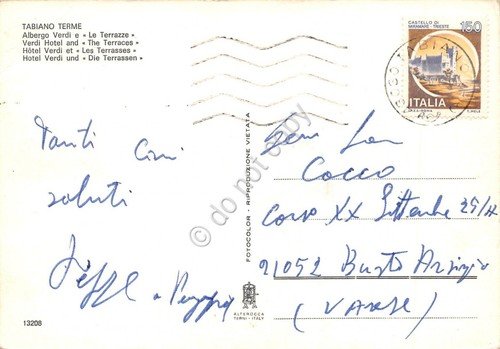 TABIANO TERME
Albergo Verdi e « Le Terrazze »
Verdi Hotel and « The Terraces »
Hôtel Verdi et « Les Terrasses »
Hotel Verdi und « Die Terrassen »
CASTELLO DI
MIRAMARE - TRIESTE
150
ITALIA
Tanti Cari
saluti
Fam
Cocco
Corso XX Settembre 25/A
21052 Busto Arsizio
(VARESE)
FOTOCOLOR - RIPRODUZIONE VIETATA
do not copy
13208
ALTEROCCA
TERNI - ITALY